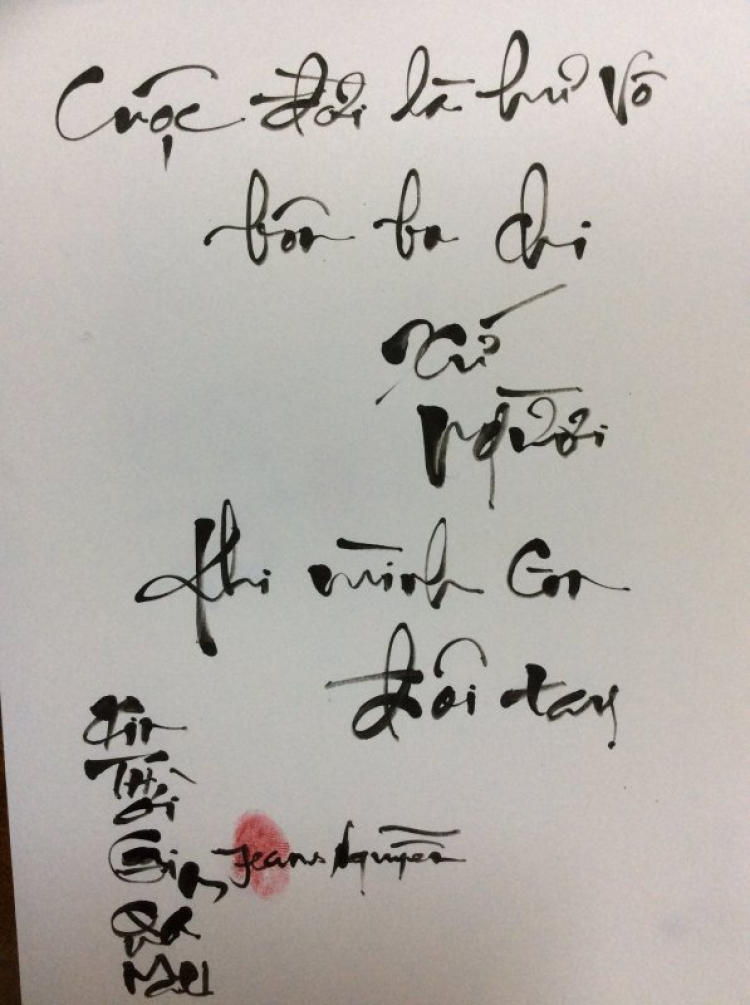 Cuộc đời là hư vô
bôn ba chi
xứ
người
khi mình còn
đôi tay
Xin
Thời
Gian
Qua
Mau
Jeans Nguyễn